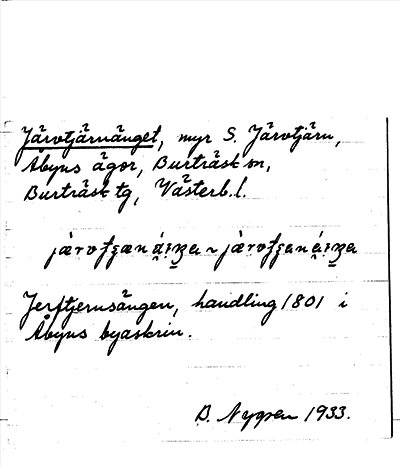 Järvtjärnänget, myr S. Järvtjärn,
Åbyns ägor, Burträsk sn,
Burträsk tg, Västerb. l.
Jerftjernsängen, handling 1801 i
Åbyns byaskrin.
D. Nygren 1933.